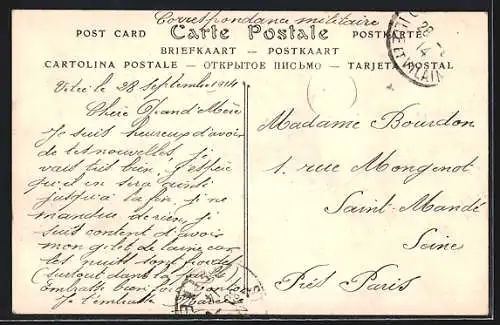 Correspondance militaire
POST CARD Carte Postale POSTKARTE
BRIEFKAART — POSTKAART
CARTOLINA POSTALE — ОТКРЫТОЕ ПИСЬМО — TARJETA POSTAL
Vitré le 28 Septembre 1914
Chère Grand'Mère
Je suis heureux d'avoir
de tes nouvelles, je
vais très bien, j'espère
qu'il en sera ainsi
jusqu'à la fin, je ne
manque de rien, je
suis content d'avoir
mon gilet de laine car
les nuits sont froides
(surtout dans la
bien
Je t'embrasse
Madame Bourdon
1. rue Mongenot
Saint-Mandé
Seine
Près Paris
28
14
ET VILAINE